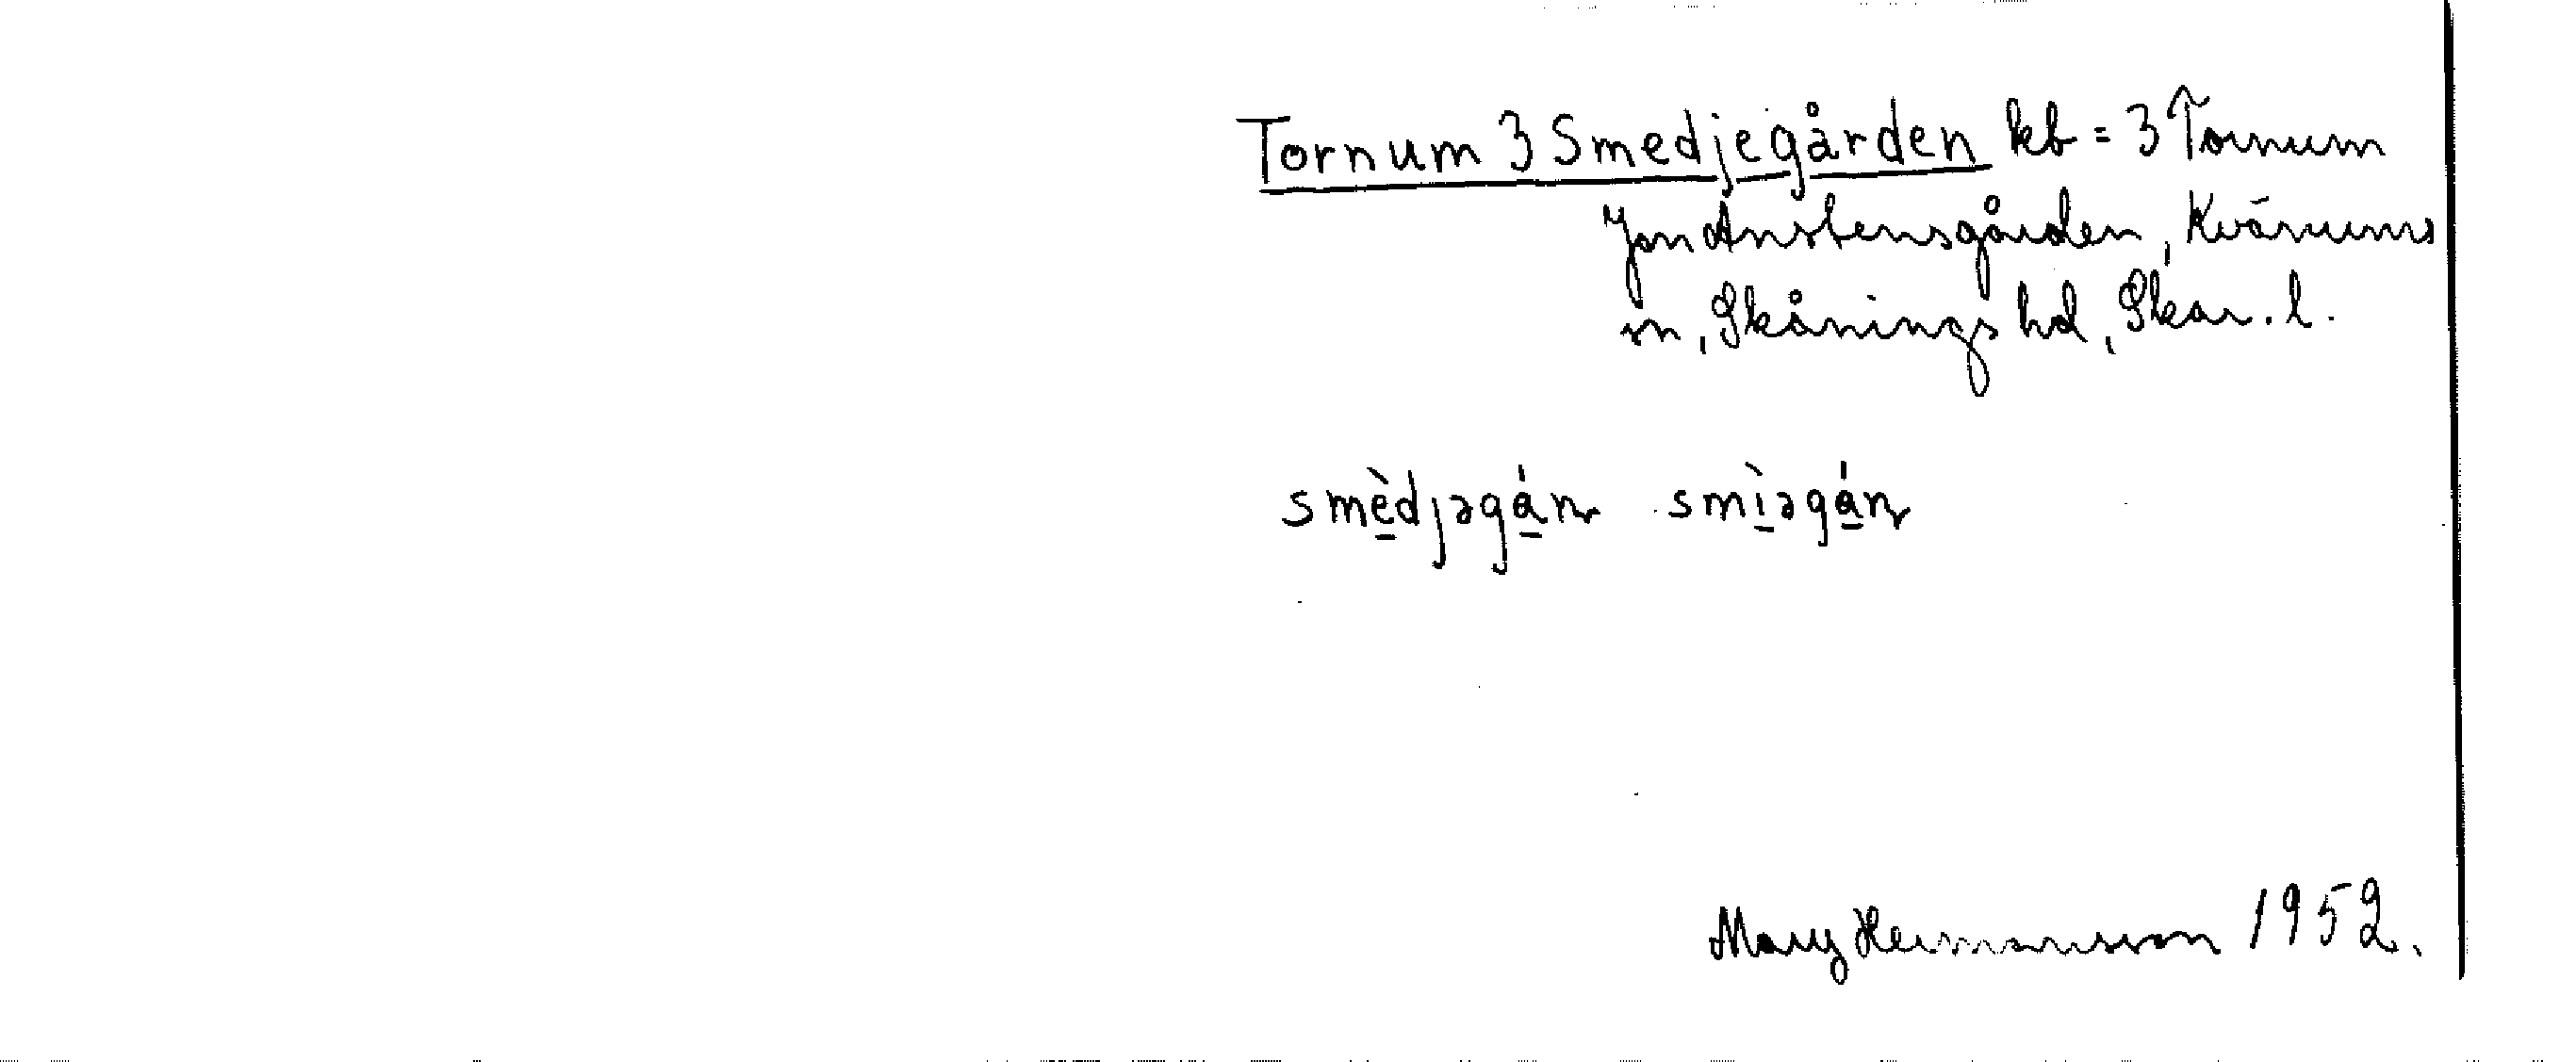 Tornum 3 Smedjegården kb = 3 Tornum
Jon Anstensgården, Kvänums
sn, Skånings hd, Skar. l.
smèdjəgán smìəgán
Mary Hermansson 1952.